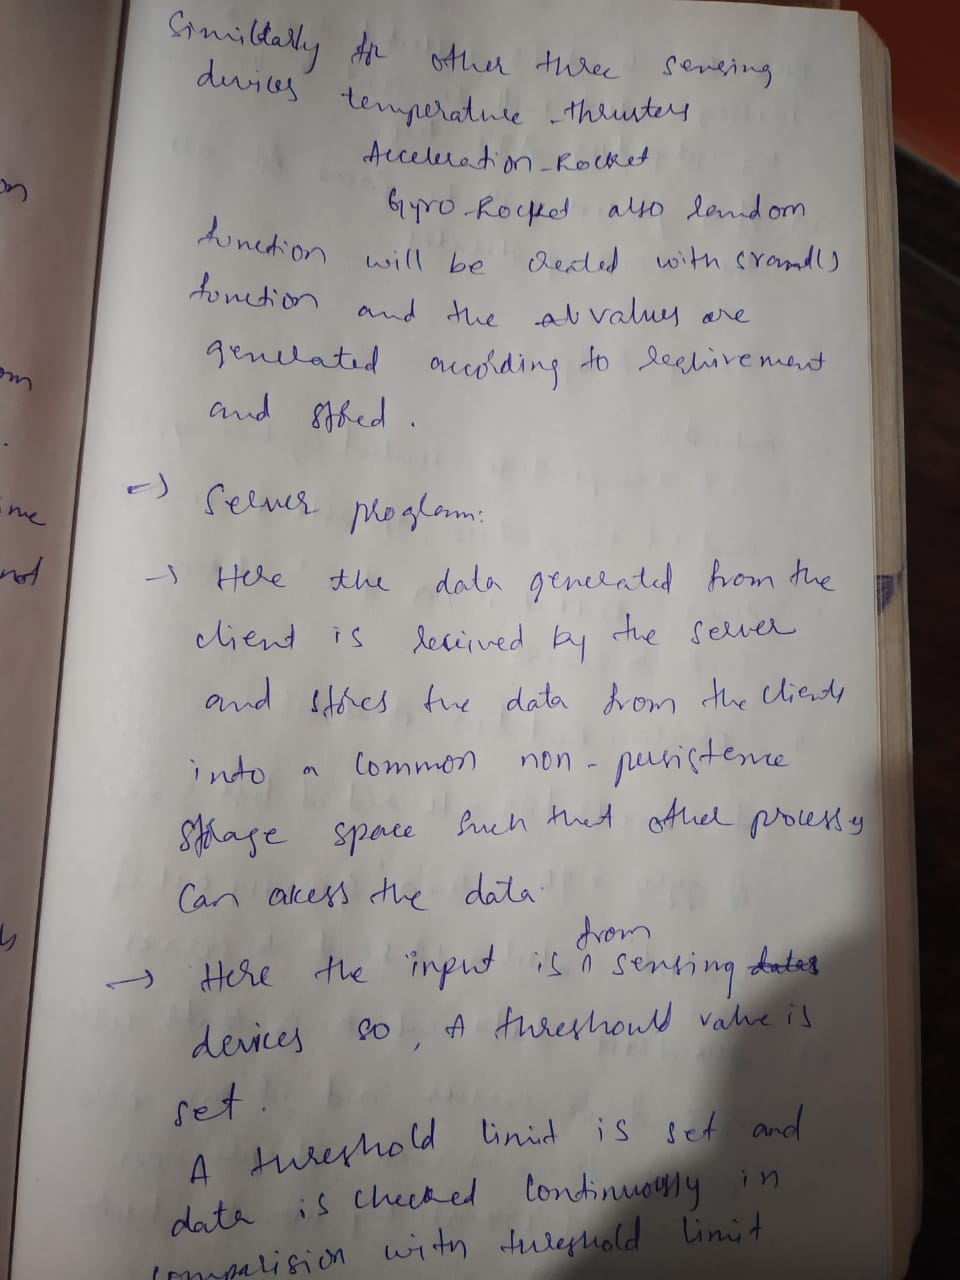 Similarly for other three sensing
devices temperature - thrusters
Acceleration - Rocket
Gyro - Rocket also random
function will be created with srand()
function and the values are
generated according to requirement
and stored.
=> Server program:
→ Here the data generated from the
client is recived by the server
and stores the data from the clients
into a common non - persistence
storage space such that other process
can acess the data.
→ Here the input is from sensing datas
devices so, A threshould value is
set.
A threshold limit is set and
data is checked continuously in
comparision with threshold limit
on
om
.
ime
not